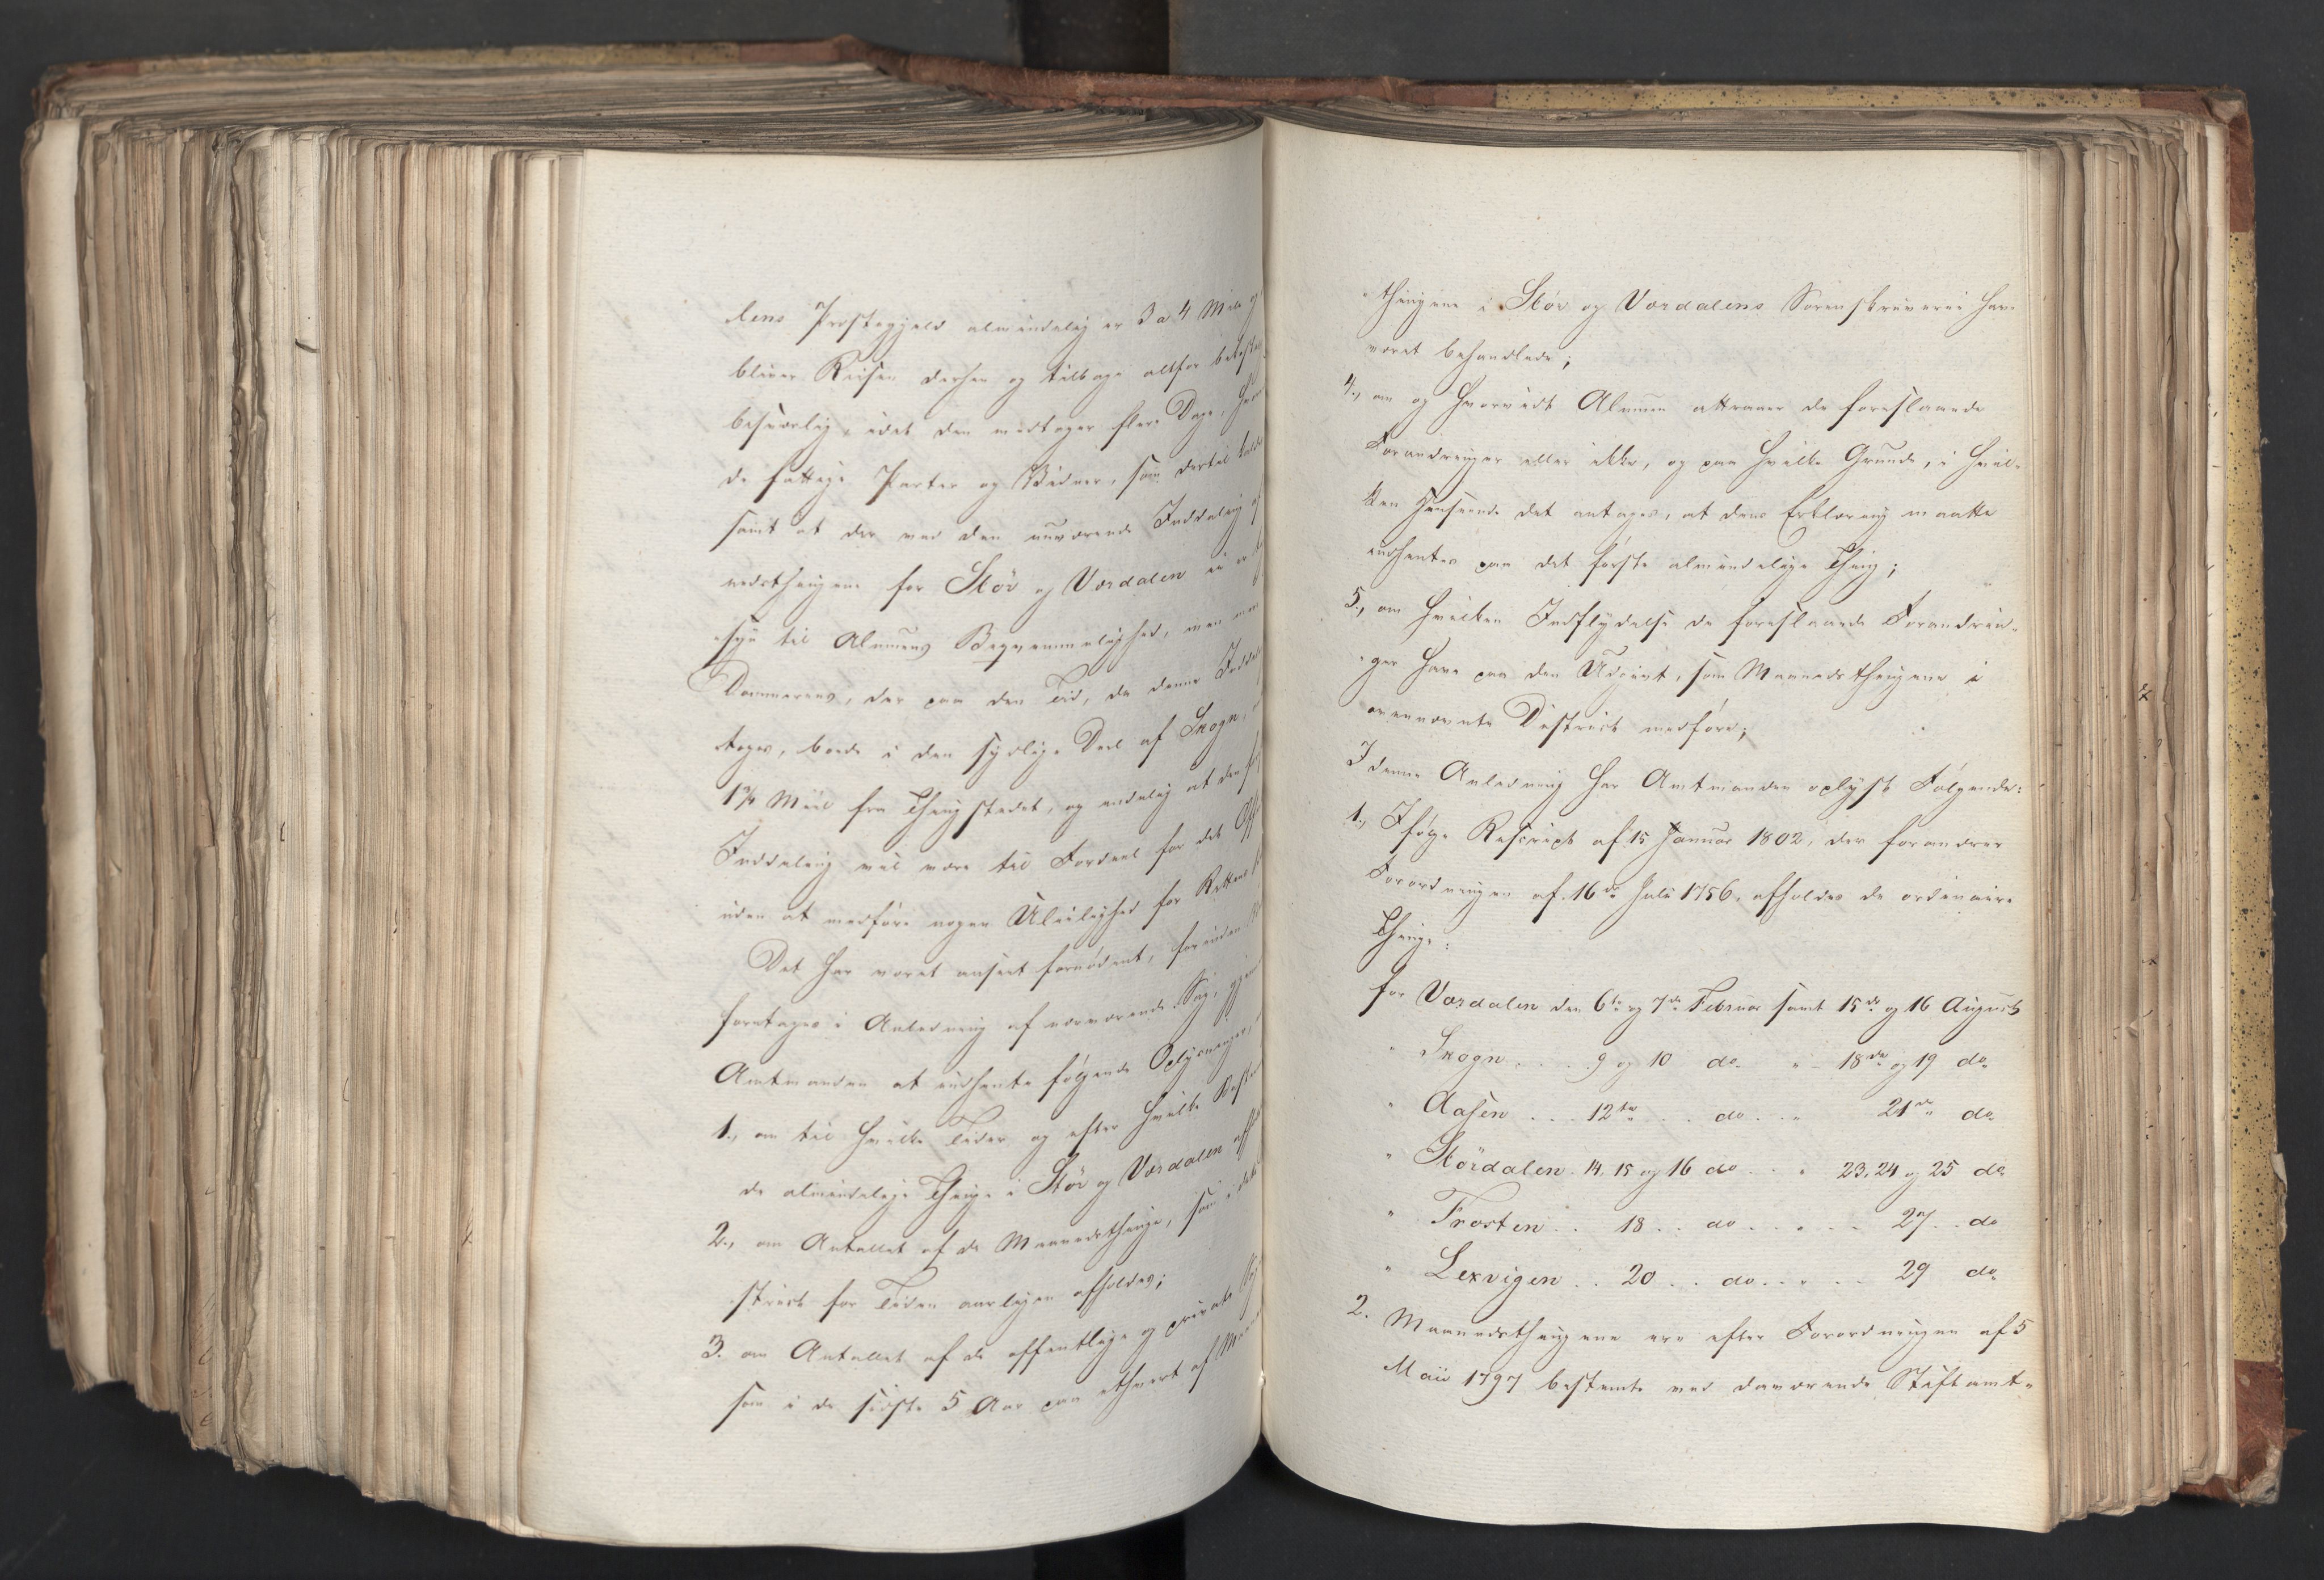 dens Præstegjeld almindelig er 3 a 4 Mile
bliver Reisen derhen og tilbage altfor
besværlig, idet den medtager flere Dage,
de fattige Parter og Vidner, som dertil
samt at der ved den nuværende Inddeling
nedsthingene for Stör og Værdalen ei er
syn til Almuens Beqvemmelighed, men
Dommerens, der paa den Tid, da denne
toges, boede i den sydlige Deel af Skogn,
1¼ Miil fra Thingstedet, og endelig at den
Inddeling vil være til Fordeel for det
uden at medføre nogen Uleilighed for Rettens
Det har været anseet fornødent, forinden
foretages i Anledning af nærværende Sag,
Amtmanden at indhente følgende Oplysninger,
1., om til hvilke Tider og efter hvilke
de almindelige Thinge i Stör og Værdalen
2., om Antallet af de Maanedsthinge, som i
strict for Tiden aarligen afholdes;
3. om Antallet af de offentlige og private
som i de sidste 5 Aar paa ethvert af
thingene i Stör og Værdalens Sorenskriverie have
været behandlede;
4., om og hvorvidt Almuen attraaer de foreslaaede
Forandringer eller ikke, og paa hvilke Grunde, i hvil-
ken Henseende det antages, at dens Erklæring maatte
indhentes paa det første almindelige Thing;
5., om hvilken Indflydelse de foreslaaede Forandrin-
ger have paa den Udgivt, som Maanedsthingene i
ovennævnte District medføre;
I denne Anledning har Amtmanden oplyst Følgende:
1., Ifølge Rescript af 15 Januar 1802, der forandrer
Forordningen af 16de Juli 1756, afholdes de ordinaire
Thinge:
for Værdalen den 6te og 7de Februar samt 15de og 16 August
" Skogn . . . 9 og 10 do " - 18de og 19 do
" Aasen . . . 12te . . do . . " 21de do
" Stördalen . 14, 15 og 16 do . . " 23, 24 og 25 do
" Frosten . . 18 . . do . . . " - - 27 . . do
" Lexvigen . . 20 . . do . . . " - - 29 do
2. Maanedsthingene ere efter Forordningen af 5
Maii 1797 bestemte ved daværende Stiftamt-